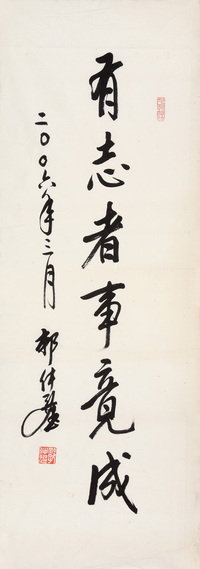 有志者事竟成
二〇〇六年三月